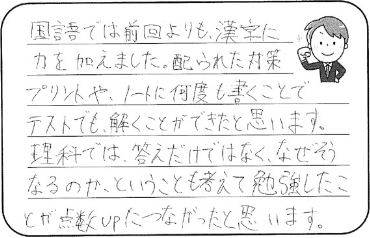 国語では前回よりも、漢字に
力を加えました。配られた対策
プリントや、ノートに何度も書くことで
テストでも、解くことができたと思います。
理科では、答えだけではなく、なぜそう
なるのか、ということも考えて勉強したこ
とが点数upにつながったと思います。